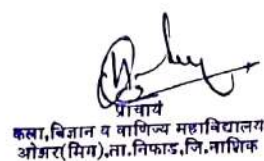 प्राचार्य
कला,विज्ञान व वाणिज्य महाविद्यालय
ओझर(मिग),ता.निफाड,जि.नाशिक